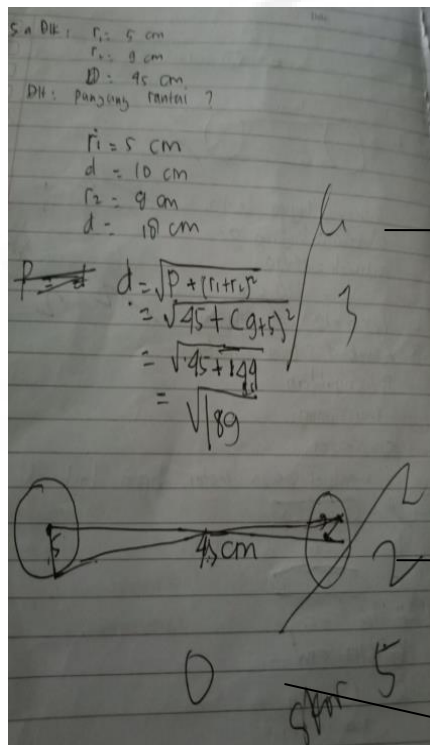 5 a Dik : r₁ = 5 cm
r₂ = 9 cm
D = 45 cm
Dit : panjang rantai ?
r1 = 5 cm
d = 10 cm
r2 = 9 cm
d = 18 cm
d = √P + (r1+r2)²
= √45 + (9+5)²
= √45+144
= √189
3
5
45 cm
2
0
skor 5